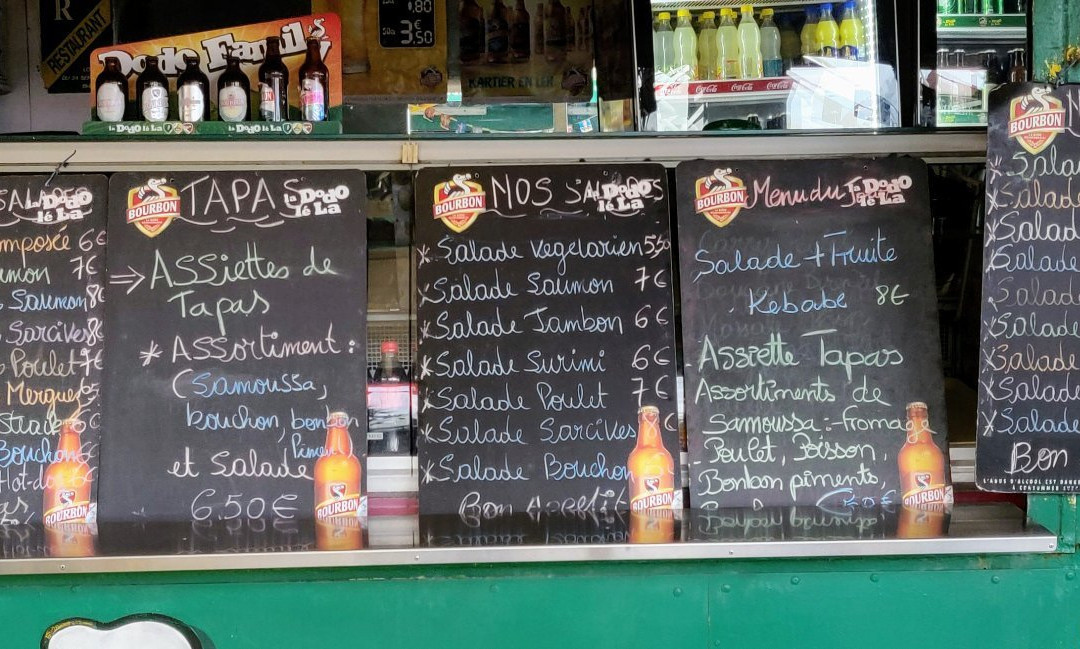 RESTAURANT
Dodo Family
la Dodo lé La
la Dodo lé La
,80
3€
3.50
KARTIER EN LER
Coca-Cola
Coca-Cola
Coca-Cola
la Dodo
lé La
mposée 6€
umon 7€
Saumon 8€
Sarcives 8€
Poulet 7€
Merguez
Steack
Bouchon
Hot-dog
BOURBON
BOURBON
TAPAS
la Dodo
lé La
⇒ ASSiettes de
Tapas
* ASSortiment :
(Samoussa,
bouchon, bonbon
Piment)
et Salade
6.50€
BOURBON
BOURBON
NOS SALADES
la Dodo
lé La
* Salade Vegetarien 5,50
* Salade Saumon 7€
* Salade Jambon 6€
* Salade Surimi 6€
* Salade Poulet 7€
* Salade Sarcives 8€
* Salade Bouchon
Bon Appetit
BOURBON
BOURBON
Menu du J
la Dodo
lé La
Salade + Fruite
Kebabe 8€
Assiette Tapas
Assortiments de
Samoussa:-fromage
-Poulet, Poisson,
Bonbon piments,
BOURBON
BOURBON
N
Salade
Salade
Salade
Salade
Salade
Salade
Salade
Salade
Salade
Bon
L'ABUS D'ALCOOL EST DANGE